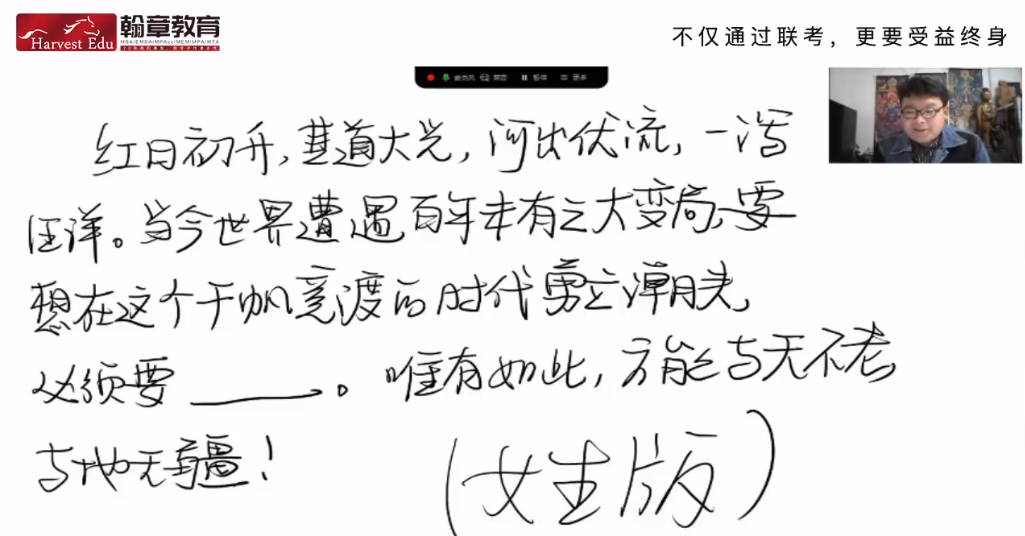 Harvest Edu 翰章教育
MBA/EMBA/MPAcc/MEM/MPA/MTA
不仅通过联考，更要受益终身
红日初升，其道大光，河出伏流，一泻
汪洋。当今世界遭遇百年未有之大变局，要
想在这个千帆竞渡的时代勇立潮头，
必须要 ______。唯有如此，方能与天不老，
与地无疆！
（女生版）